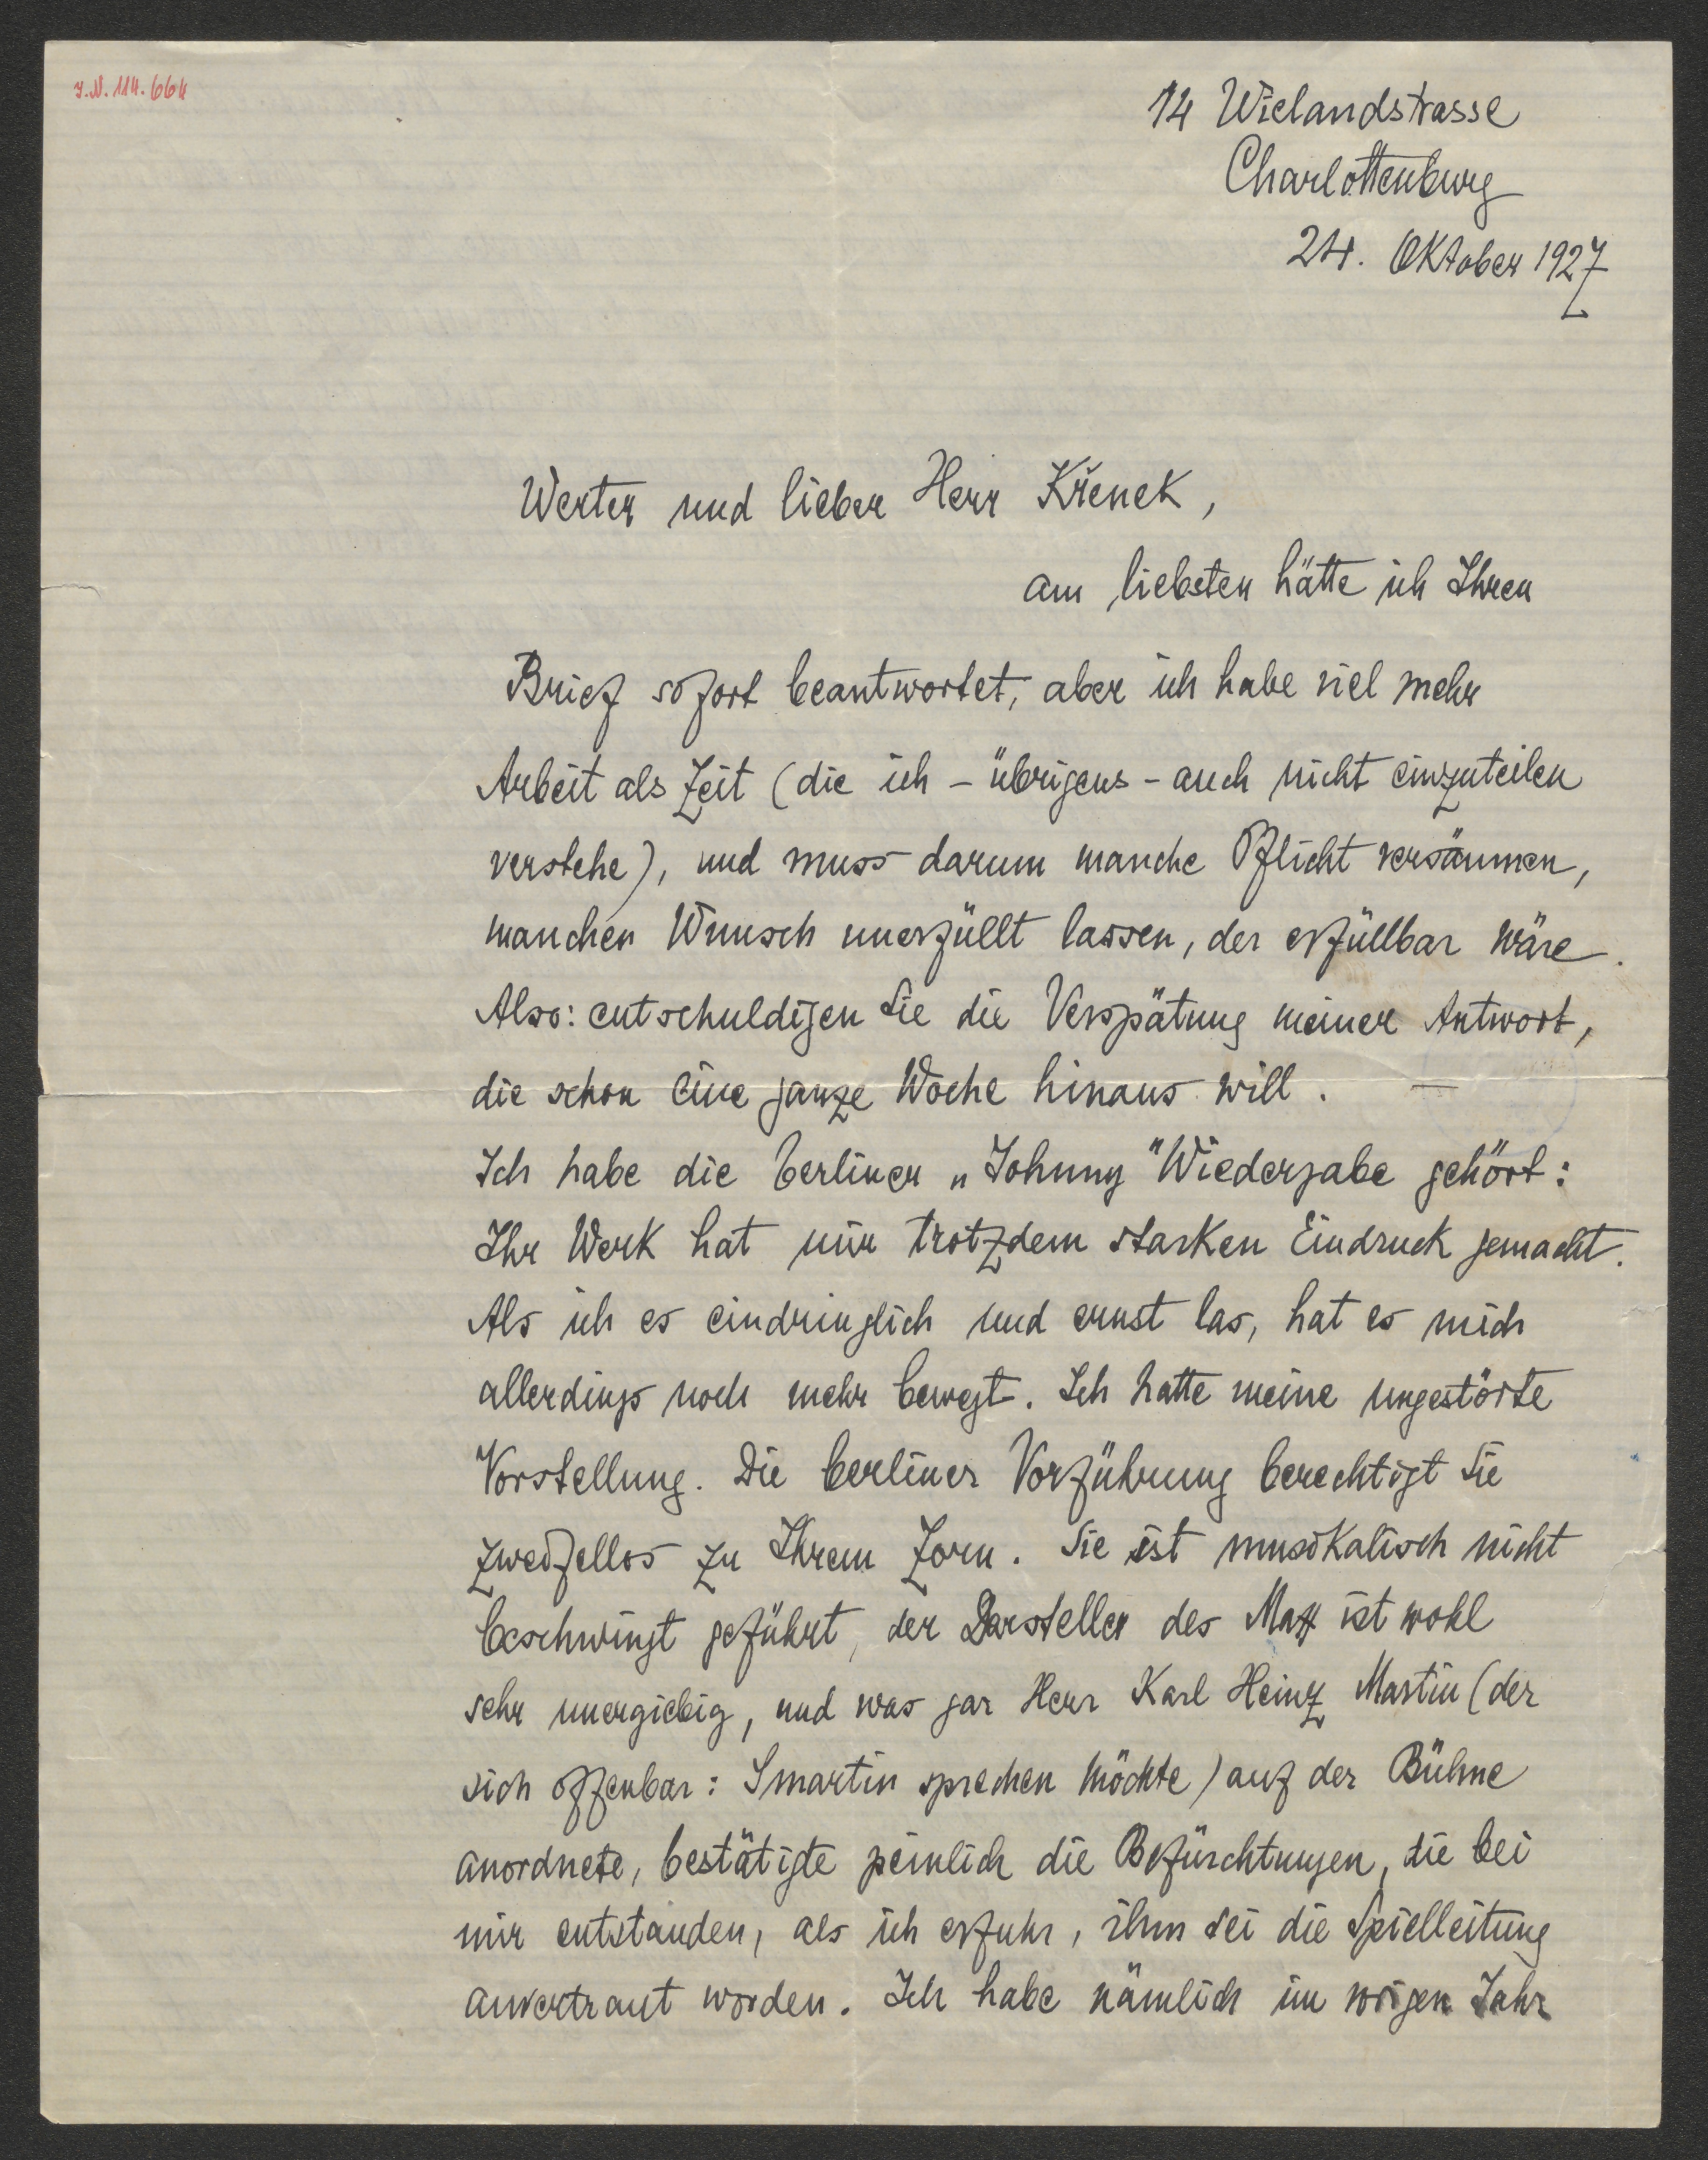 I.N. 114.664
14 Wielandstrasse
Charlottenburg
24. Oktober 1927
Werter und lieber Herr Křenek,
am liebsten hätte ich Ihren
Brief sofort beantwortet, aber ich habe viel mehr
Arbeit als Zeit (die ich - übrigens - auch nicht einzuteilen
verstehe), und muss darum manche Pflicht versäumen,
manchen Wunsch unerfüllt lassen, der erfüllbar wäre.
Also: entschuldigen Sie die Verspätung meiner Antwort,
die schon eine ganze Woche hinaus will. —
Ich habe die berliner „Johnny" Wiedergabe gehört:
Ihr Werk hat mir trotzdem starken Eindruck gemacht.
Als ich es eindringlich und ernst las, hat es mich
allerdings noch mehr bewegt. Ich hatte meine ungestörte
Vorstellung. Die berliner Vorführung berechtigt Sie
zweifellos zu Ihrem Zorn. Sie ist musikalisch nicht
beschwingt geführt, der Darsteller des Max ist wohl
sehr unergiebig, und was gar Herr Karl Heinz Martin (der
sich offenbar: Smartin sprechen möchte) auf der Bühne
anordnete, bestätigte peinlich die Befürchtungen, die bei
mir entstanden, als ich erfuhr, ihm sei die Spielleitung
anvertraut worden. Ich habe nämlich im vorigen Jahr